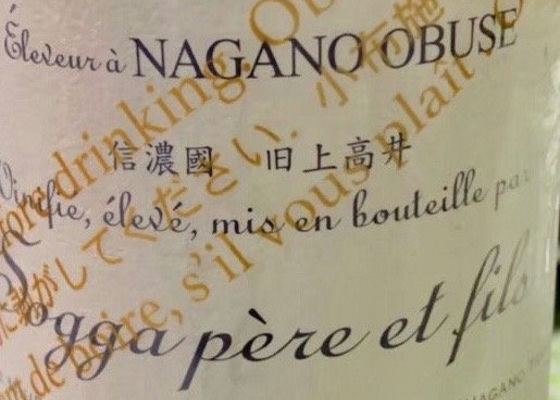 Éleveur à NAGANO OBUSE
信濃國 旧上高井
Vinifié, élevé, mis en bouteille par
Sogga père et fils
NAGANO
drinking. Ob
してください. 小布施
de boire, s'il vous plaît